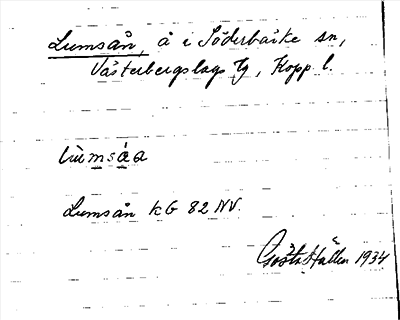 Lumsån, å i Söderbärke sn,
Västerbergslags tg, Kopp. l.
lùmsá̱a
Lumsån kG 82 NV.
Gösta Hallén 1934